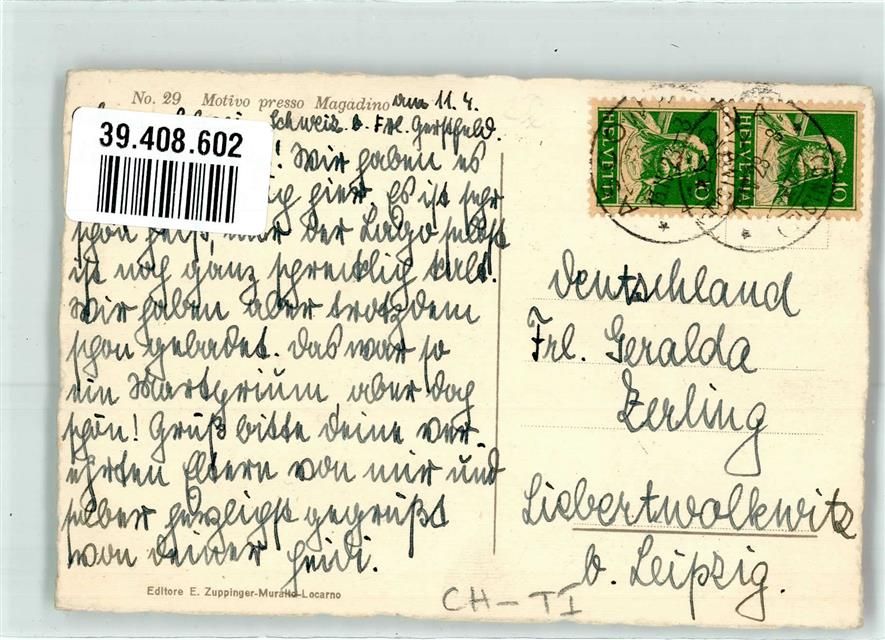 No. 29 Motivo presso Magadino am 11.4.
Schweiz b. Frl. Gerschfeld.
39.408.602
! Wir haben es
hier. Es ist sehr
schön heiß, nur der Lago selbst
ist noch ganz schrecklich kalt.
Wir haben aber trotzdem
schon gebadet. Das war so
ein Martyrium aber doch
schön! Grüß bitte deine ver
ehrten Eltern von mir und
selber herzlichst gegrüßt
von deiner Heidi.
Editore E. Zuppinger-Muralto-Locarno
HELVETIA
10
HELVETIA
10
Deutschland
Frl. Geralda
Zerling
Liebertwolkwitz
b. Leipzig.
CH-TI